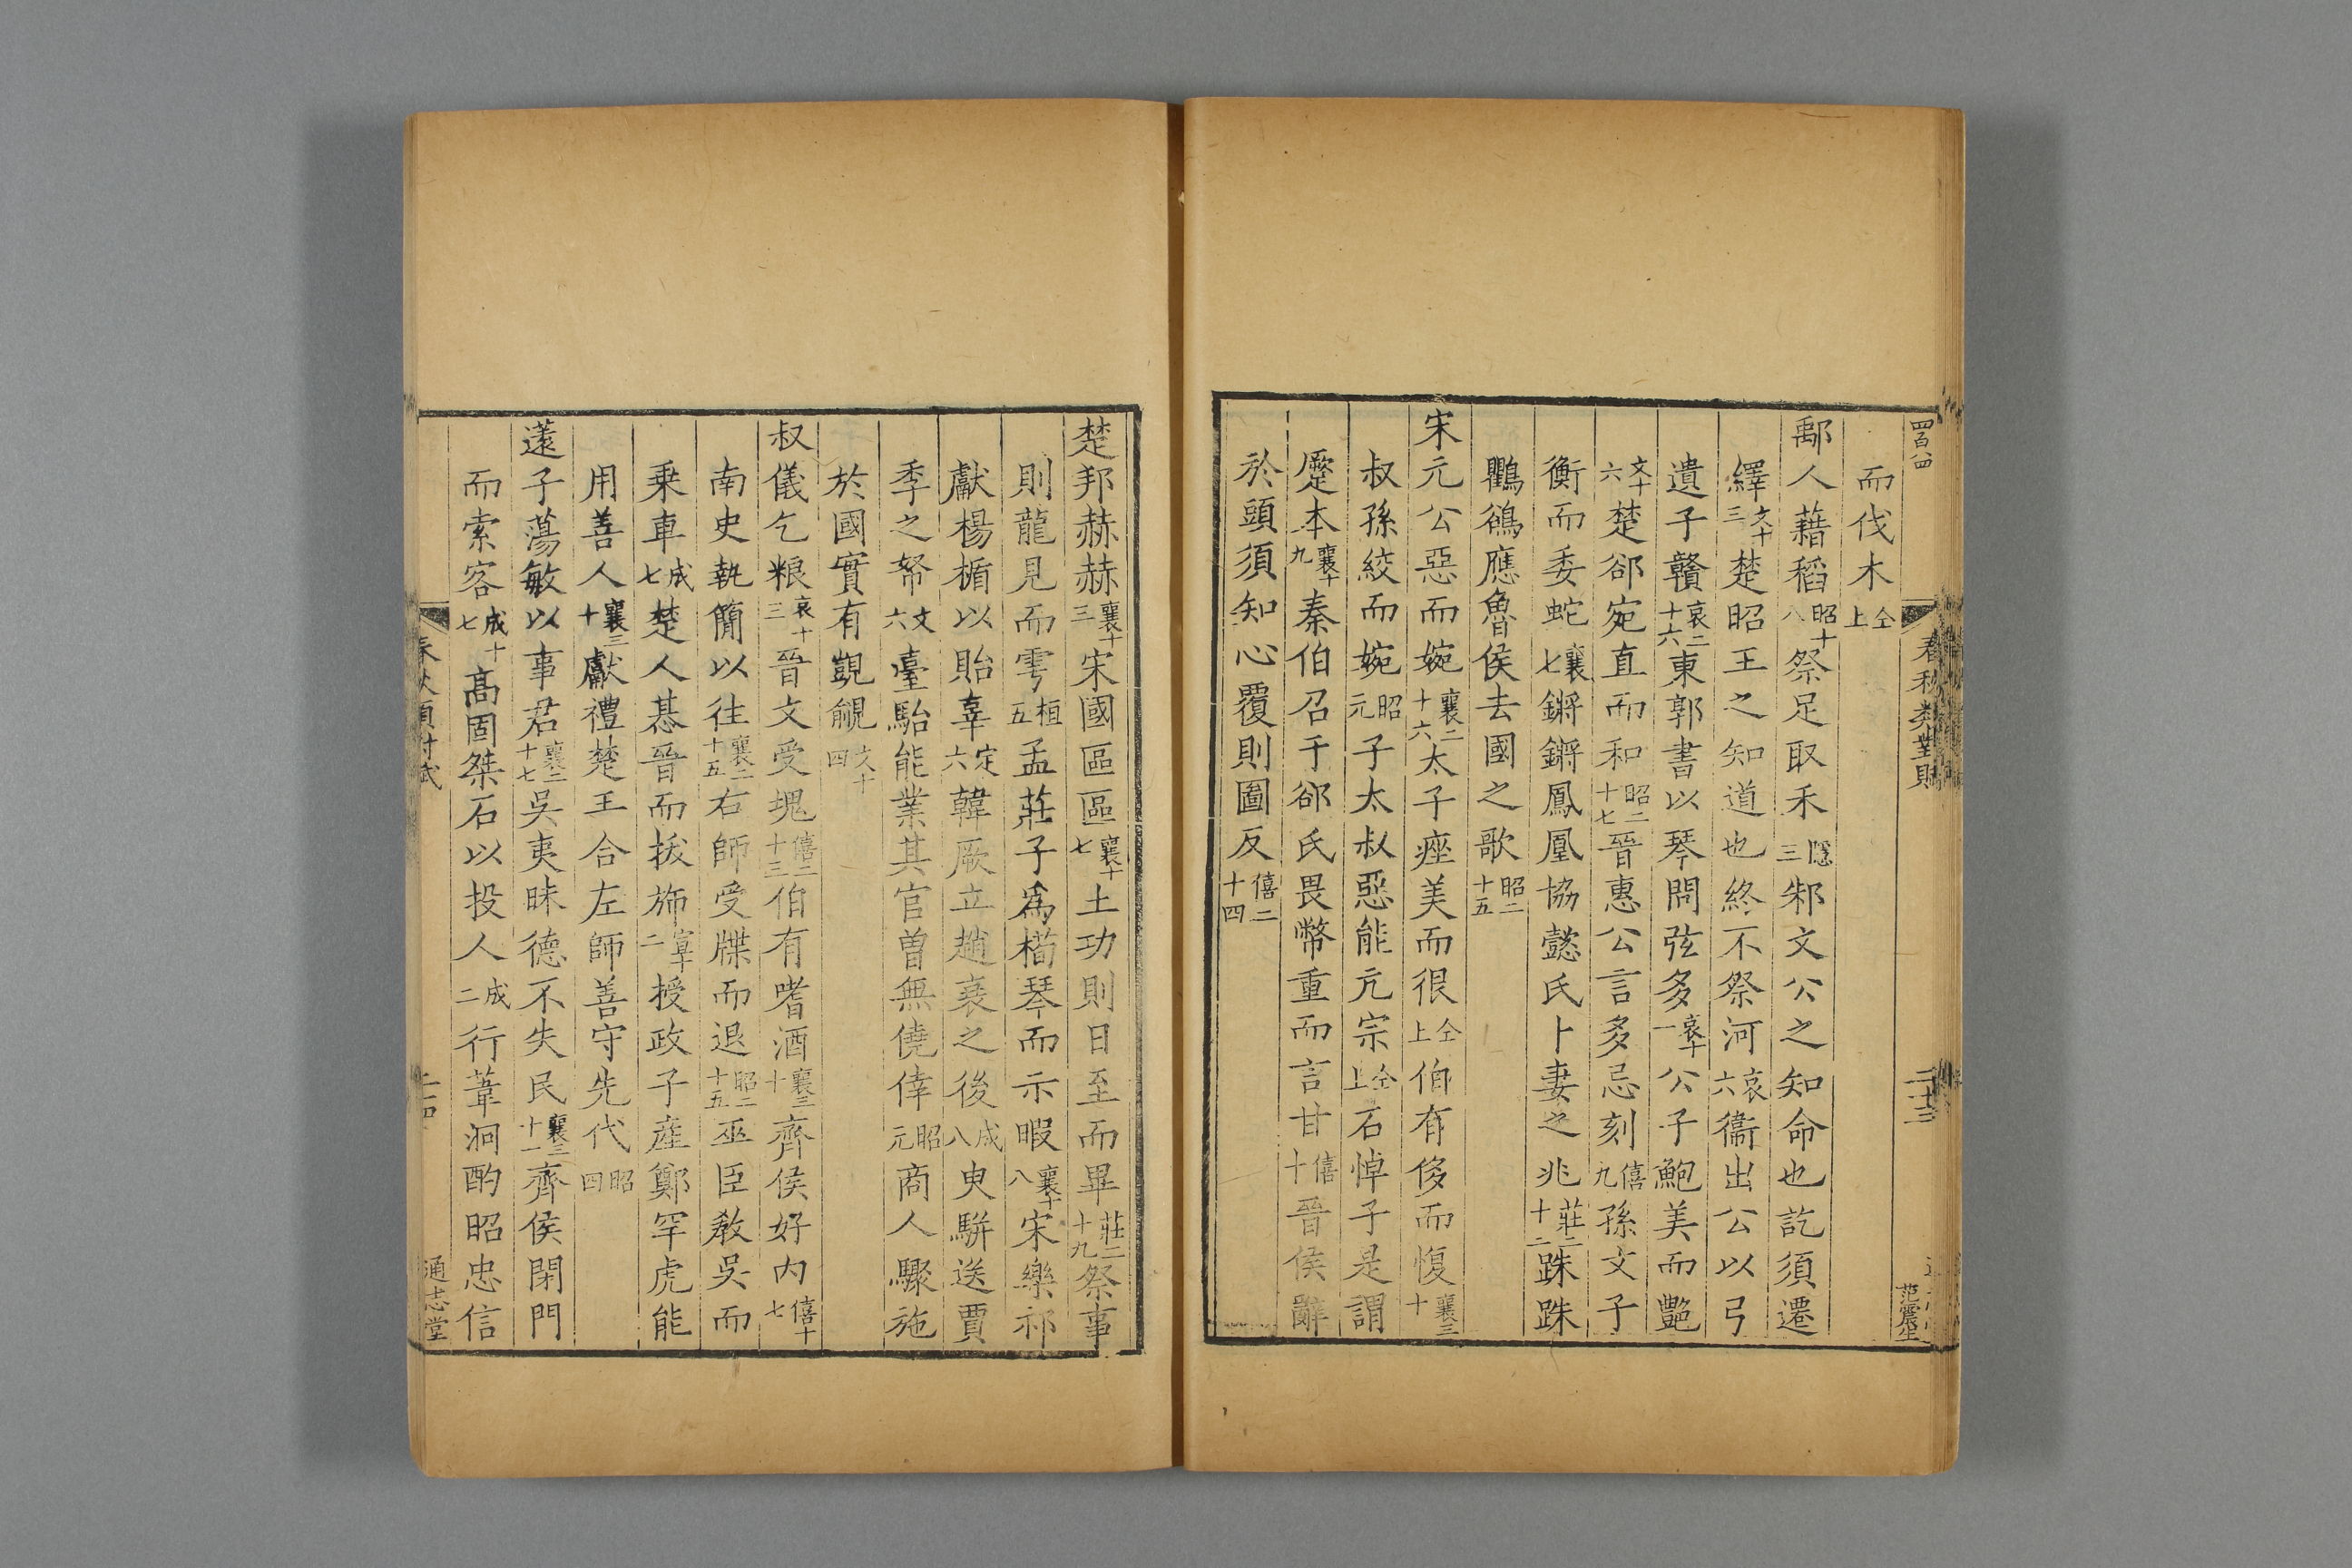 四百八四
春秋類對賦
二十三
范震生
而伐木仝上
鄅人藉稻昭十八祭足取禾隱三邾文公之知命也訖須遷
繹文十三楚昭王之知道也終不祭河哀六衞出公以弓
遺子贛哀二十六東郭書以琴問弦多哀十一公子鮑美而艷
文十六楚郤宛直而和昭二十七晉惠公言多忌刻僖九孫文子
衡而委蛇襄七鏘鏘鳳凰協懿氏卜妻之兆莊二十二跦跦
鸜鵒應魯侯去國之歌昭二十五
宋元公惡而婉襄二十六太子痤美而很仝上伯有侈而愎襄三十
叔孫絞而婉昭元子太叔惡能亢宗仝上石悼子是謂
蹷本襄十九秦伯召于郤氏畏幣重而言甘僖十晉侯辭
於頭須知心覆則圖反僖二十四
楚邦赫赫襄十三宋國區區襄十七土功則日至而畢莊二十九祭事
則龍見而雩桓五孟莊子爲橁琴而示暇襄十八宋樂祁
獻楊楯以貽辜定六韓厥立趙衰之後成八臾駢送賈
季之帑文六臺駘能業其官曾無僥倖昭元商人驟施
於國實有覬覦文十四
叔儀乞粮哀十三晉文受塊僖二十三伯有嗜酒襄三十齊侯好內僖十七
南史執簡以往襄二十五右師受牒而退昭二十五巫臣敎吳而
乗車成七楚人惎晉而拔斾宣十二授政子產鄭罕虎能
用善人襄三十獻禮楚王合左師善守先代昭四
薳子蕩敏以事君襄二十七吳夷昧德不失民襄三十一齊侯閉門
而索客成十七髙固桀石以投人成二行葦泂酌昭忠信
春秋類對賦
二十四
通志堂